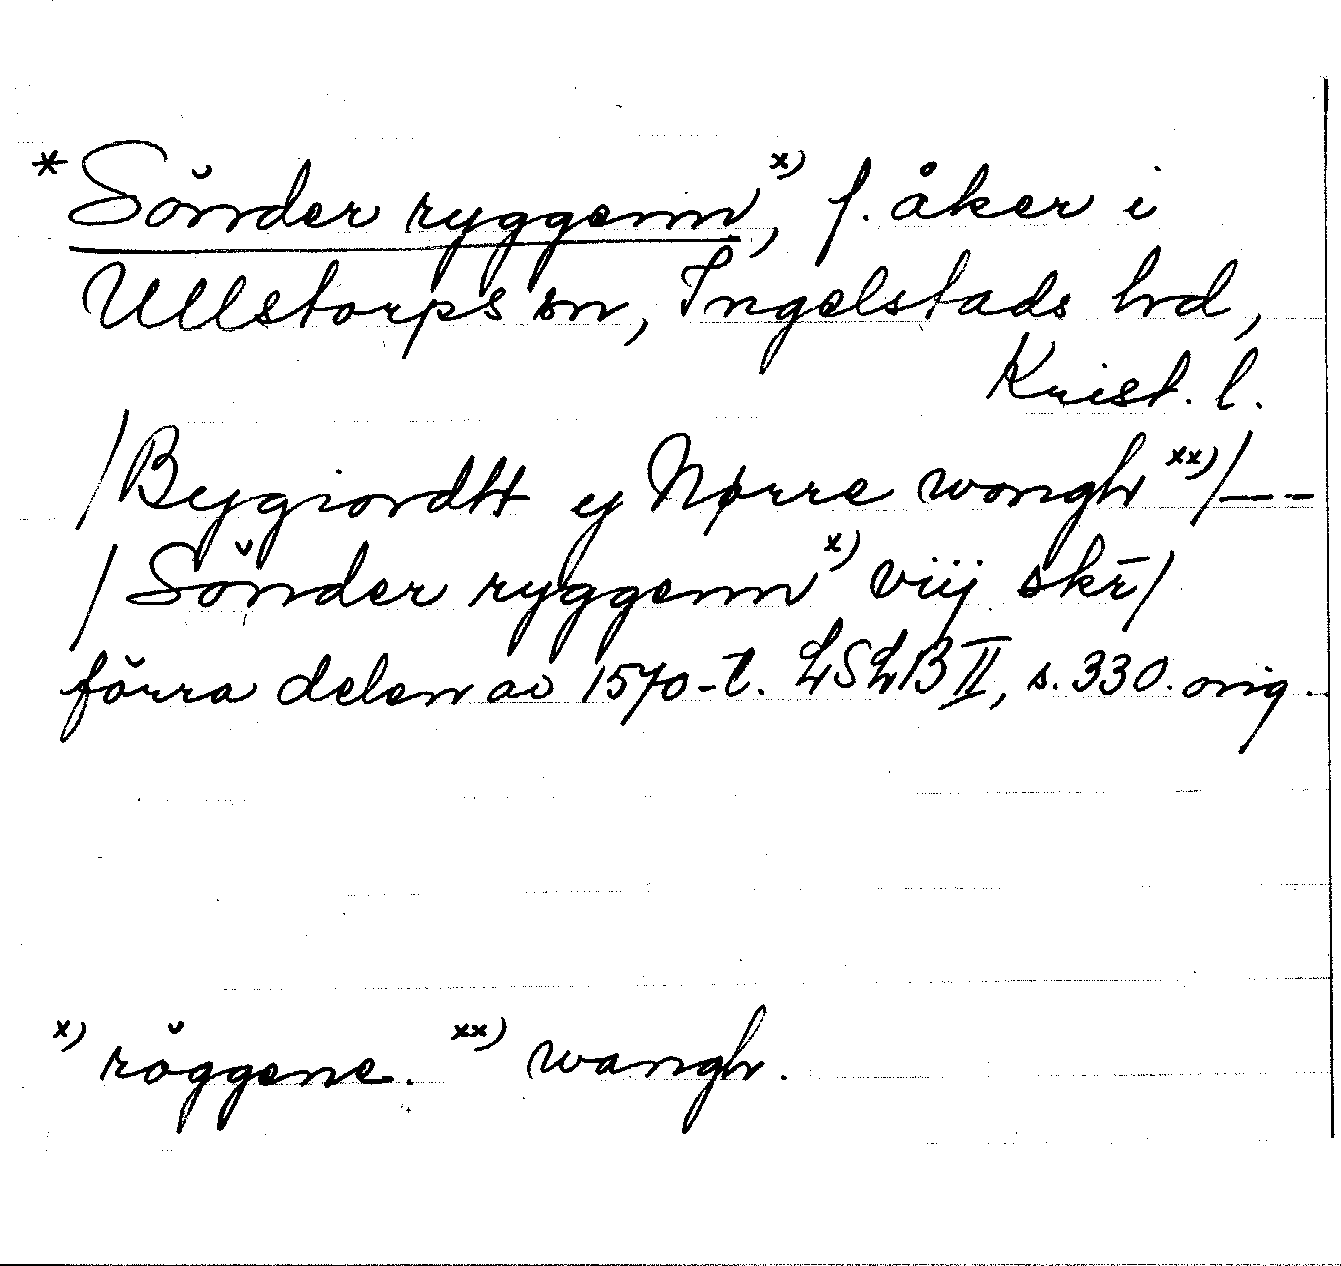 *Sönder ryggenn x), f. åker i
Ullstorps sn, Ingelstads hd,
Krist. l.
/Bygiordtt ey Nørre wongh xx)/---
/Sönder ryggenn x) viij skr̄/
förra delen av 1570-t. LSLB II, s. 330. orig.
x) röggene. xx) wangh.